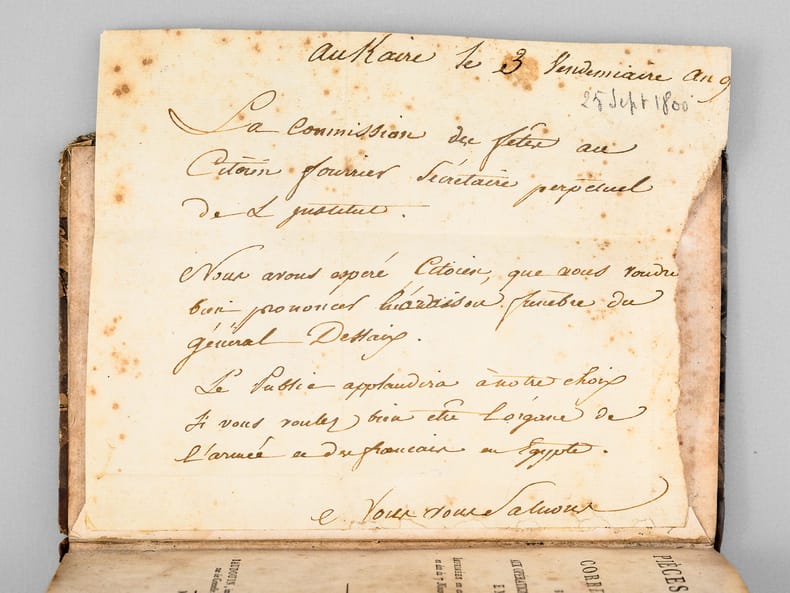 Au Kaire le 3 Vendemiaire an 9
25 Sept 1800
La Commission des fêtes au
Citoien fourrier Secrétaire perpetuel
de L'institut.
Nous avons esperé Citoien, que vous voudrez
bien prononcer funebre du
général Dessaix.
Le Public applaudira à notre choix
Si vous voulez bien être l'organe de
l'armée et des francais en Egypte.
Nous vous Saluons
PIÈCES
CORRE
AUX OPÉRATION